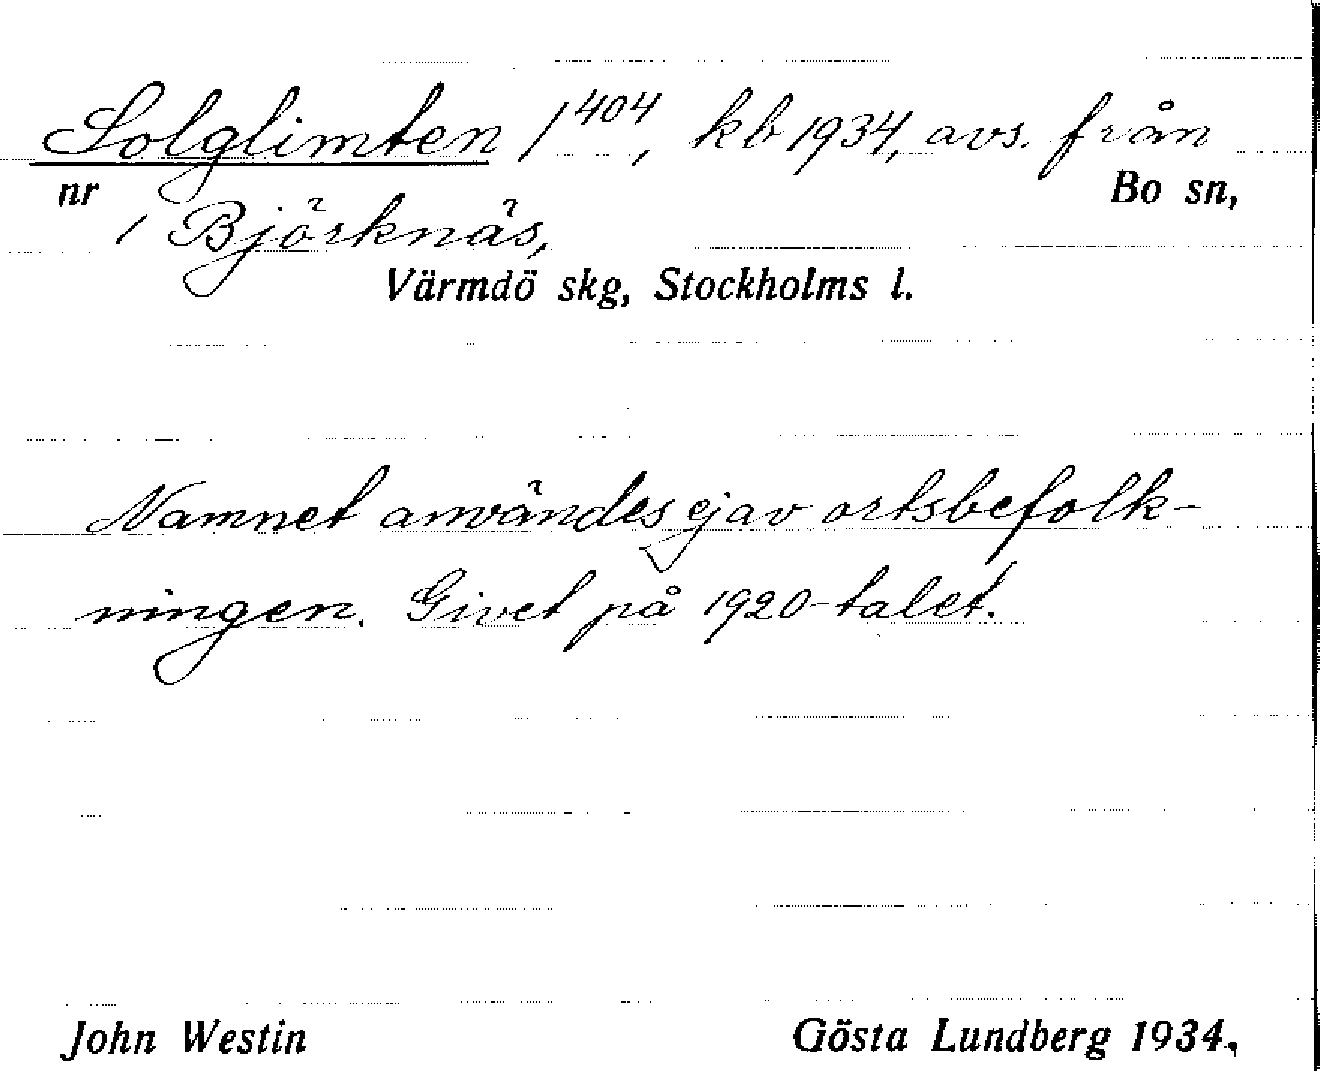 Solglimten 1⁴⁰⁴, kb 1934, avs. från
nr Bo sn,
1 Björknäs,
Värmdö skg, Stockholms l.
Namnet användes ej av ortsbefolk-
ningen. Givet på 1920-talet.
John Westin Gösta Lundberg 1934.,